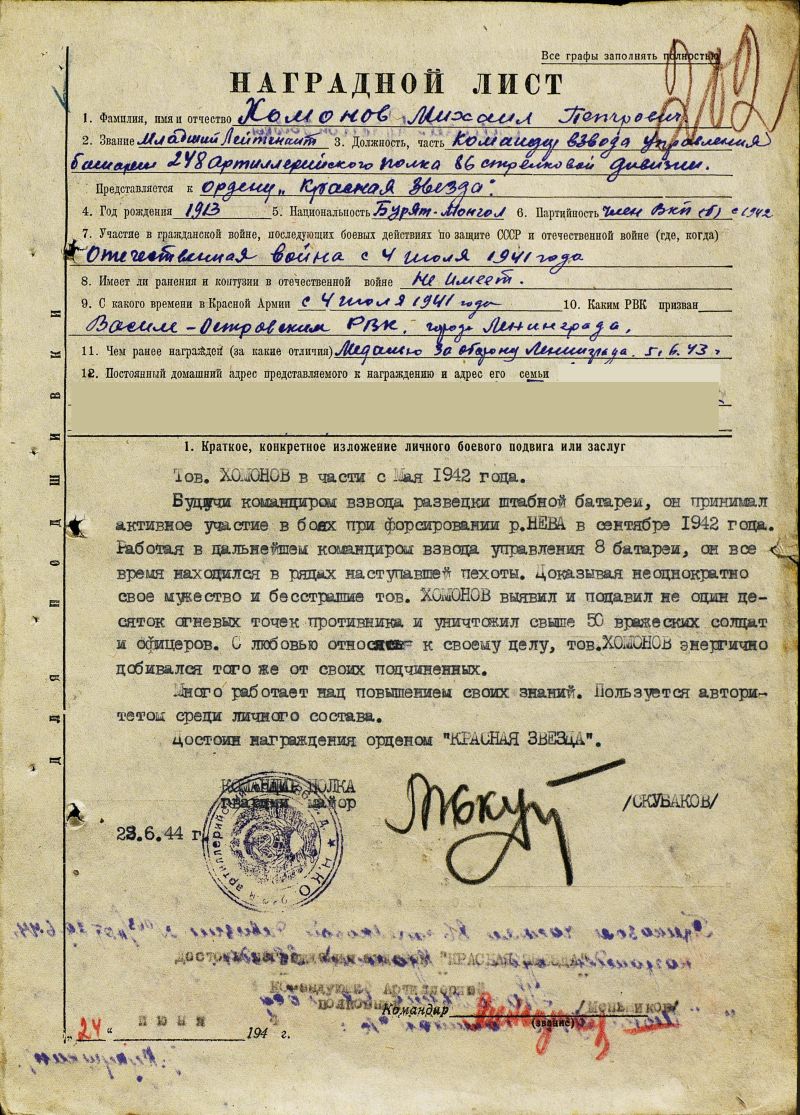 Все графы заполнять полностью
202
НАГРАДНОЙ ЛИСТ
1. Фамилия, имя и отчество Хомонов Михаил Петрович
2. Звание Младший Лейтенант 3. Должность, часть Командир взвода управления
батареи 248 Артиллерийского полка 86 стрелковой дивизии.
Представляется к ордену „Красная Звезда".
4. Год рождения 1913 5. Национальность Бурят-Монгол 6. Партийность Член ВКП(б) с 1942
7. Участие в гражданской войне, последующих боевых действиях по защите СССР и отечественной войне (где, когда)
Отечественная война с 4 июля 1941 года
8. Имеет ли ранения и контузии в отечественной войне не имеет.
9. С какого времени в Красной Армии с 4 июля 1941 года 10. Каким РВК призван
Васил-Островским РВК, города Ленинграда,
11. Чем ранее награжден (за какие отличия) Медалью За оборону Ленинграда. 5.6.43 г
12. Постоянный домашний адрес представляемого к награждению и адрес его семьи
1. Краткое, конкретное изложение личного боевого подвига или заслуг
Тов. ХОМОНОВ в части с Мая 1942 года.
Будучи командиром взвода разведки штабной батареи, он принимал
активное участие в боях при форсировании р.НЕВА в сентябре 1942 года.
Работая в дальнейшем командиром взвода управления 8 батареи, он все
время находился в рядах наступавшей пехоты. Доказывая неоднократно
свое мужество и бесстрашие тов. ХОМОНОВ выявил и подавил не один де-
сяток огневых точек противника и уничтожил свыше 50 вражеских солдат
и офицеров. С любовью относясь к своему делу, тов.ХОМОНОВ энергично
добивался того же от своих подчиненных.
Много работает над повышением своих знаний. Пользуется автори-
тетом среди личного состава.
Достоин награждения орденом "КРАСНАЯ ЗВЕЗДА".
КОМАНДИР ПОЛКА
гвардии майор /СКУБАКОВ/
23.6.44 г.
Н.К.О.
"КРАСНАЯ ЗВЕЗДА"
Командующий Артиллерией
полковник /Меньшиков/
Командир
(звание)
"24" июня 1944 г.
Для подшивки